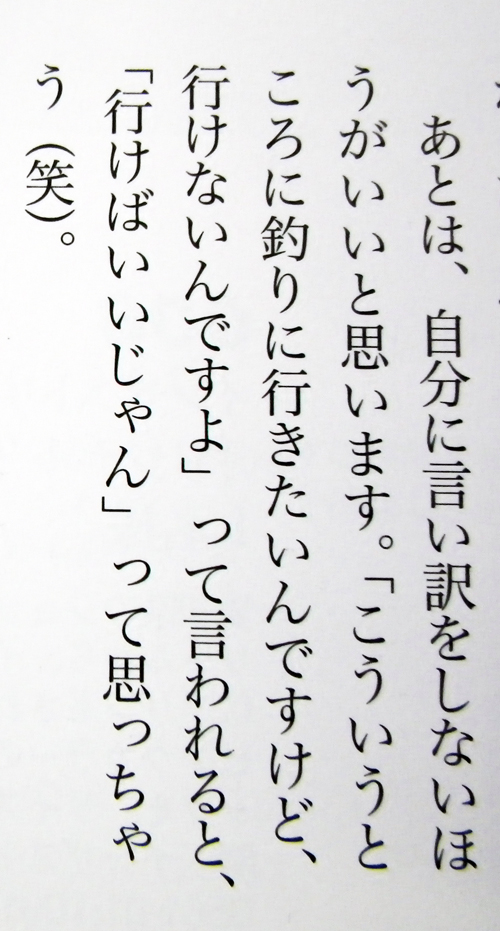 あとは、自分に言い訳をしないほ
うがいいと思います。「こういうと
ころに釣りに行きたいんですけど、
行けないんですよ」って言われると、
「行けばいいじゃん」って思っちゃ
う（笑）。